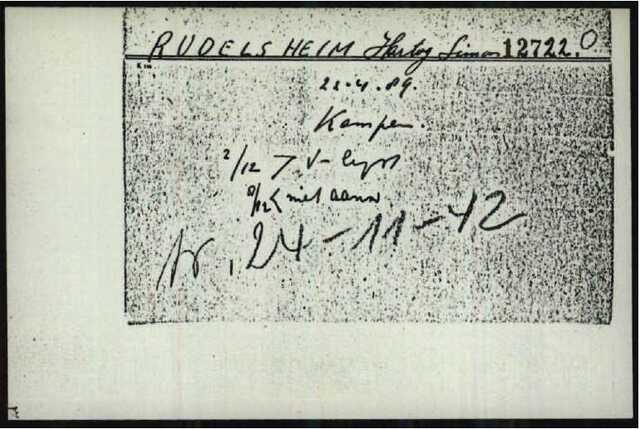 RUDELSHEIM Hartog Simon 12722. O
22-4-89.
Kampen.
2/12 > V-
8/12 < niet aanw
tr. 24-11-42